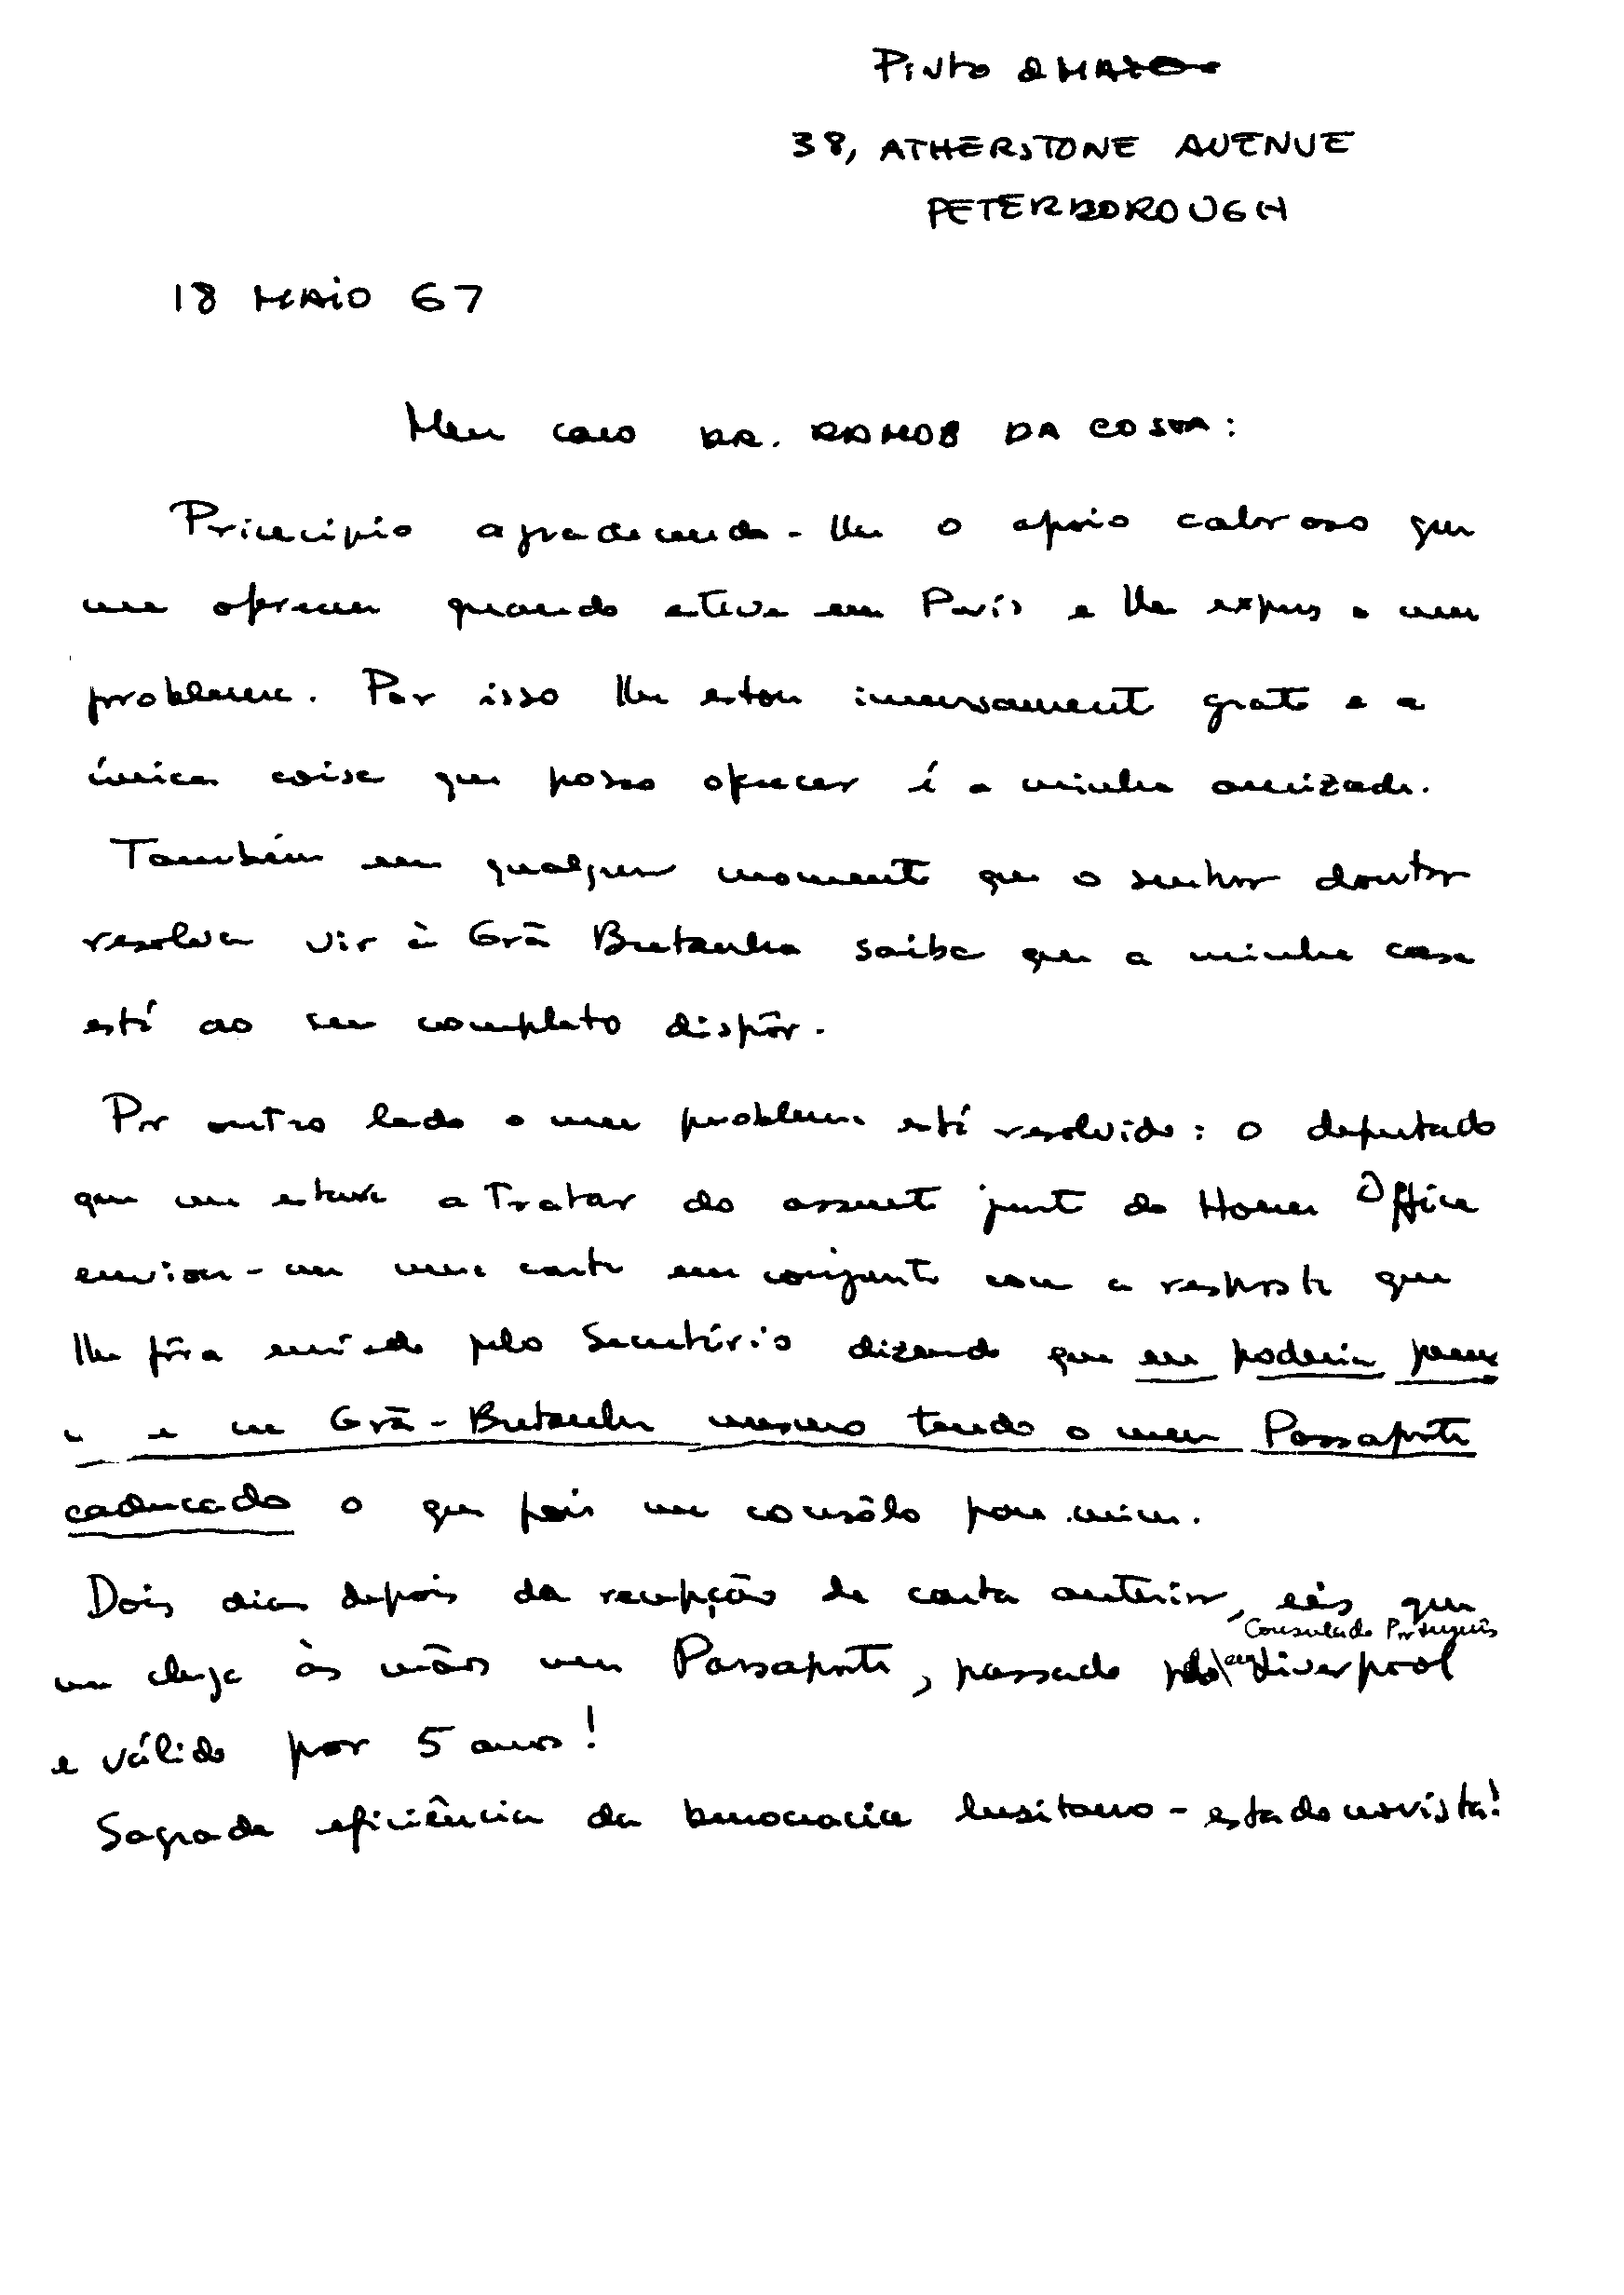 Pinto
38, ATHERSTONE AVENUE
PETERBOROUGH
18 MAIO 67
Meu caro DR. RAMOS DA COSTA:
Principio agradecendo-lhe o apoio caloroso que
me ofereceu quando estive em Paris e lhe expus o meu
problema. Por isso lhe estou imensamente grato e a
única coisa que posso oferecer é a minha amizade.
Também em qualquer momento que o senhor doutor
resolva vir à Grã Bretanha saiba que a minha casa
está ao seu completo dispôr.
Por outro lado o meu problema está resolvido: o deputado
que me estava a tratar do assunto junto do Home Office
enviou-me uma carta em conjunto com a resposta que
lhe fôra enviada pelo Secretário dizendo que eu poderia
na Grã-Bretanha mesmo tendo o meu Passaporte
caducado o que foi um consôlo para mim.
Dois dias depois da recepção da carta anterior, eis que
Consulado Português
me chega às mãos meu Passaporte, passado pelo em Liverpool
e válido por 5 anos!
Sagrada eficiência da burocracia lusitano-estadonovista!